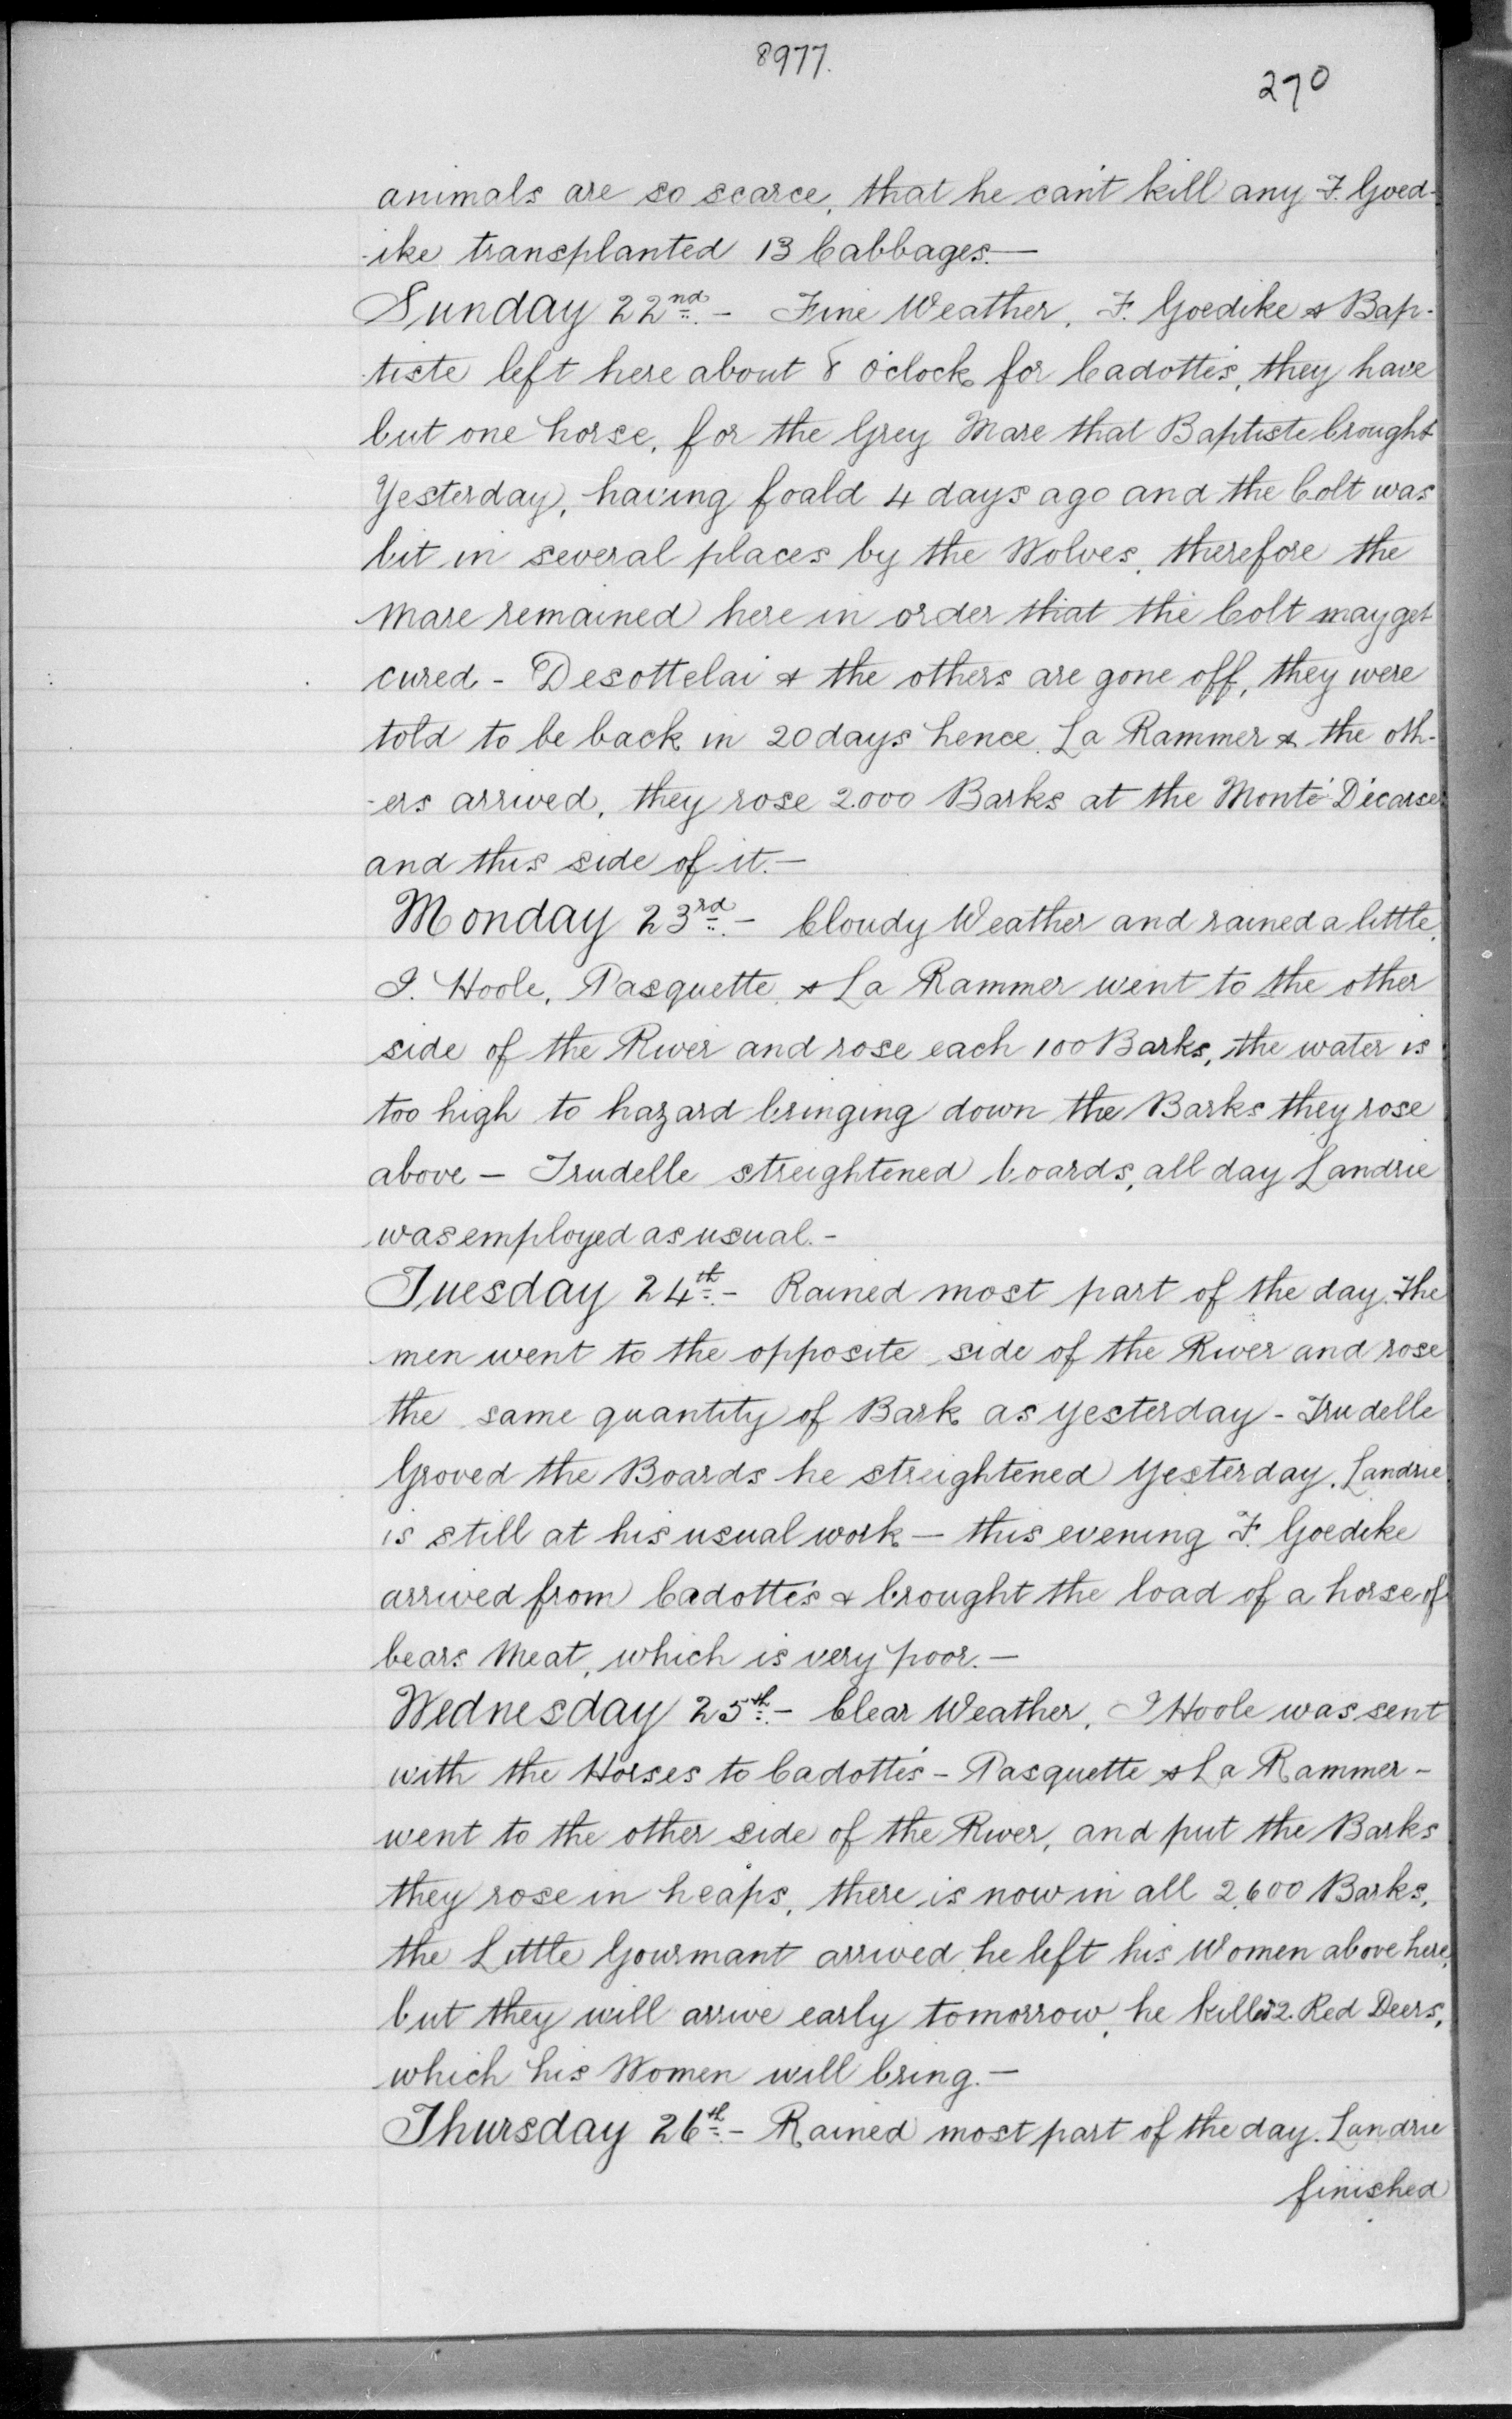 8977.
270
animals are so scarce, that he can't kill any F. Goed-
-ike transplanted 13 Cabbages.—
Sunday 22nd.- Fine Weather. F. Goedike & Bap-
-tiste left here about 8 o'clock for Cadotte's, they have
but one horse, for the Grey Mare that Baptiste brought
Yesterday, having foald 4 days ago and the Colt was
bit in several places by the Wolves, therefore the
Mare remained here in order that the Colt may get
cured - Desottelai & the others are gone off, they were
told to be back in 20 days hence. La Rammer & the oth-
-ers arrived, they rose 2.000 Barks at the Monté Décarse
and this side of it.—
Monday 23rd.- Cloudy Weather and rained a little.
I. Hoole, Pasquette, & La Rammer went to the other
side of the River and rose each 100 Barks, the water is
too high to hazard bringing down the Barks they rose
above — Trudelle streightened boards, all day Landrie
was employed as usual.-
Tuesday 24th.- Rained most part of the day. The
men went to the opposite side of the River and rose
the same quantity of Bark as yesterday - Trudelle
Groved the Boards he streightened yesterday. Landrie
is still at his usual work — this evening F. Goedike
arrived from Cadotte's & brought the load of a horse of
bears Meat, which is very poor.—
Wednesday 25th.- Clear Weather, I Hoole was sent
with the Horses to Cadotte's - Pasquette & La Rammer -
went to the other side of the River, and put the Barks
they rose in heaps, there is now in all 2,600 Barks,
the Little Gourmant arrived, he left his Women above here,
but they will arrive early tomorrow, he killed 2. Red Deers,
which his Women will bring.—
Thursday 26th.- Rained most part of the day. Landrie
finished